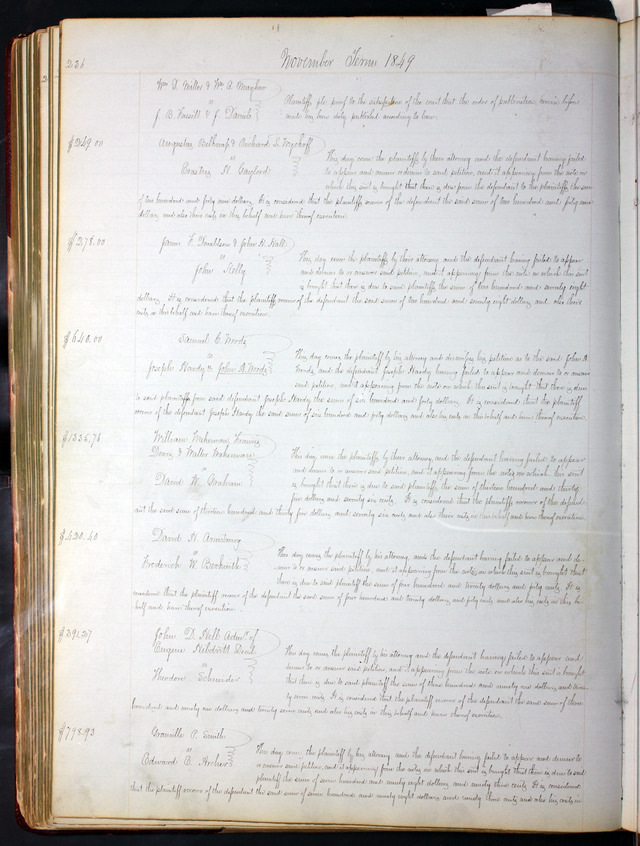 236 November Term 1849
Wm D. Miller & Wm A. Maygher
"
J B Vassill & J. Daniels
Plaintiffs file proof to the satisfaction of the court that the order of publication herein before
made has been duly published according to law.
$249.00
Augustus Belknap & Richard S. Wyckoff
"
Erastus N. Gaylord
This day come the plaintiffs by their attorney and the defendant having failed
to appear and answer or demur to said petition, and it appearing from the note on
which this suit is brought that there is due from the defendant to the plaintiffs the sum
of two hundred and forty nine dollars. It is considered that the plaintiffs recover of the defendant the said sum of two hundred and forty nine
dollars and also their costs in this behalf and have thereof execution.
$278.00
James F. Donaldson & John H. Hall
"
John Kelly
This day come the plaintiffs by their attorney and the defendant having failed to appear
and demur to or answer said petition, and it appearing from the note on which this suit
is brought that there is due to said plaintiffs the sum of two hundred and seventy eight
dollars. It is considered that the plaintiffs recover of the defendant the said sum of two hundred and seventy eight dollars and also their
costs in this behalf and have thereof execution.
$640.00
Samuel C. Woods
vs
Joseph Hardy & John A Woods
This day comes the plaintiff by his attorney and dismisses his petition as to the said John A
Woods, and the defendant Joseph Hardy having failed to appear and demur to or answer
said petition, and it appearing from the note on which this suit is brought that there is due
to said plaintiff from said defendant Joseph Hardy the sum of six hundred and forty dollars. It is considered that the plaintiff
recover of the defendant Joseph Hardy the said sum of six hundred and forty dollars and also his costs in this behalf and have thereof execution.
$1335.76
William Wakeman, Francis
& Walter Wakeman
"
David W. Graham
This day come the plaintiffs by their attorney and the defendant having failed to appear
and demur to or answer said petition, and it appearing from the notes on which this suit
is brought that there is due to said plaintiffs the sum of thirteen hundred and thirty
five dollars and seventy six cents. It is considered that the plaintiffs recover of the defend-
ant the said sum of thirteen hundred and thirty five dollars and seventy six cents and also their costs in this behalf and have thereof execution.
$420.40
David H. Armstrong
"
Frederick W. Beckwith
This day comes the plaintiff by his attorney and the defendant having failed to appear and de-
mur to or answer said petition, and it appearing from the note on which this suit is brought that
there is due to said plaintiff the sum of four hundred and twenty dollars and forty cents. It is
considered that the plaintiff recover of the defendant the said sum of four hundred and twenty dollars and forty cents and also his costs in this be-
half and have thereof execution.
$391.27
John D. Hill Admr. of
Eugene Decd
"
Theodore Schneider
This day comes the plaintiff by his attorney and the defendant having failed to appear and
demur to or answer said petition, and it appearing from the note on which this suit is brought
that there is due to said plaintiff the sum of three hundred and ninety one dollars and twen-
ty seven cents. It is considered that the plaintiff recover of the defendant the said sum of three
hundred and ninety one dollars and twenty seven cents and also his costs in this behalf and have thereof execution.
$798.93
Granville P. Smith
"
Edward B. Archer
This day comes the plaintiff by his attorney and the defendant having failed to appear and demur to
or answer said petition, and it appearing from the note on which this suit is brought that there is due to said
plaintiff the sum of seven hundred and ninety eight dollars and ninety three cents. It is considered
that the plaintiff recover of the defendant the said sum of seven hundred and ninety eight dollars and ninety three cents and also his costs in